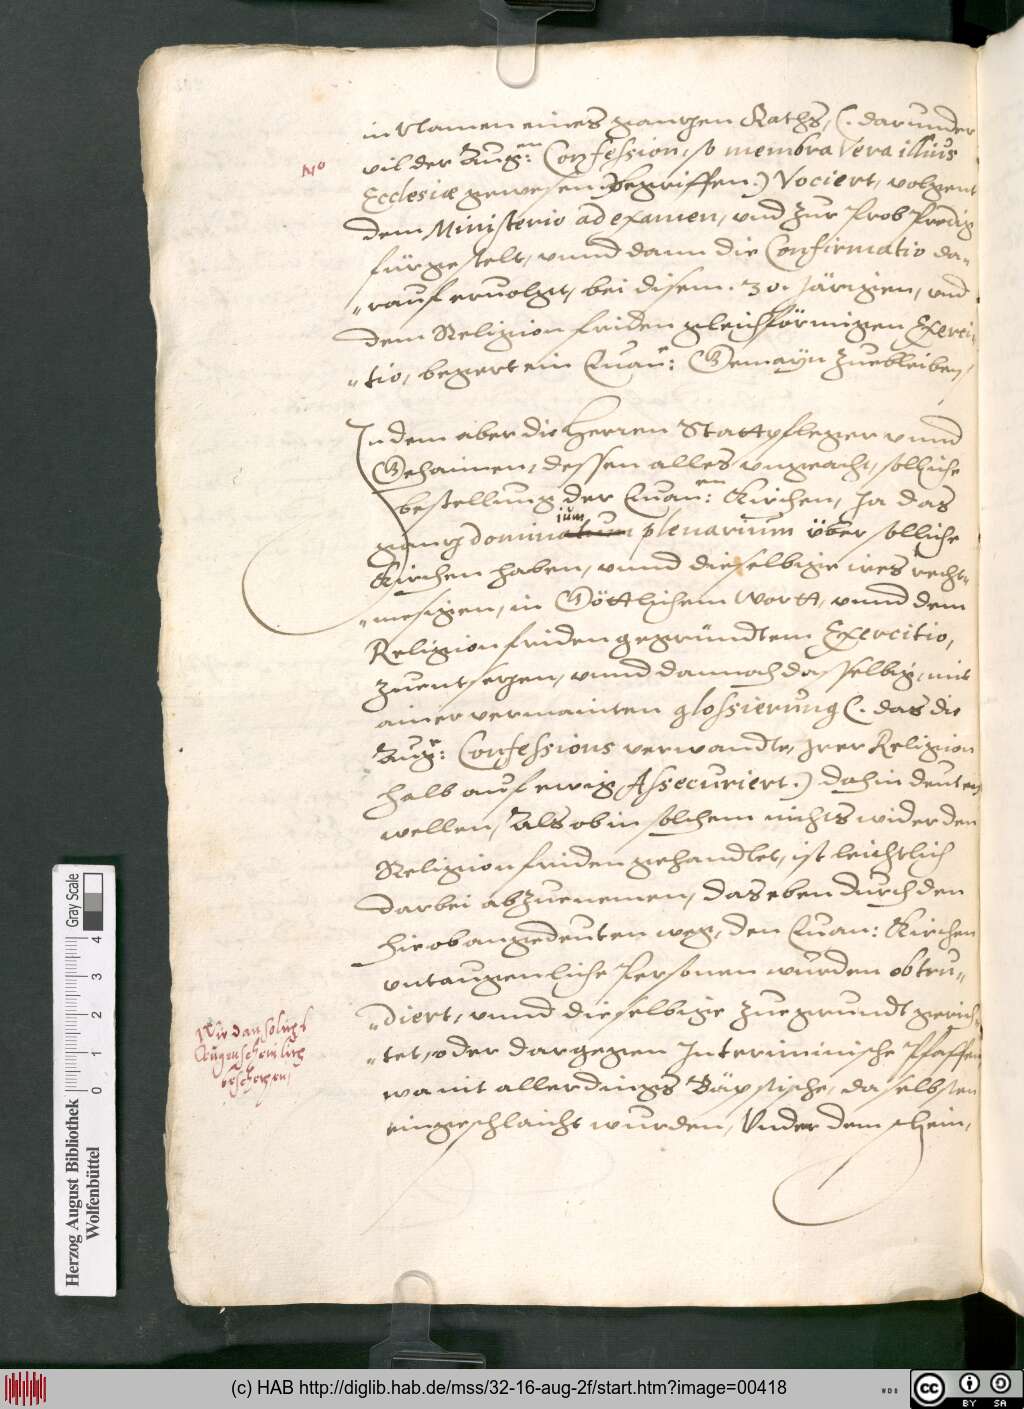 in Namen eines gantzen Raths, (. darunder
vil der Aug:en Confession, so membra vera illius
No
Ecclesiæ gewesen begriffen.) Vociert, volgent
dem Ministerio ad examen, und zur Prob Predig
fürgestelt, unnd dann die Confirmatio da„
„rauf ervolgt, bei disem .30. Järigen, und
dem Religion friden gleichförmigen Exerci„
„tio, begert ein Euan: Gemayn zuebleiben,
In dem aber die Herren Stattpfleger unnd
Gehaimen, dessen alles ungeacht, solliche
bestellung der Euan:en Kirchen, Ja das
gantz dominatum ium plenarium über solliche
Kirchen haben, unnd dieselbige ires recht„
„mesigen, in Göttlichem Wortt, unnd dem
Religion friden gegründtem Exercitio,
zuentsetzen, unnd dannoch dasselbig, mit
ainer vermainten glossierung (. das die
Aug: Confessions verwandte, irer Religion
halb auf ewig Assecuriert.) dahin deuten
wellen, Als ob in solchem nichts wider den
Religion friden gehandlet, ist leichtlich
darbei abzuenemen, das eben durch den
hieob angedeuten weg, den Euan: Kirchen
untaugenliche Personen wurden obtru„
„diert, unnd dieselbige zuegrundt gerich„
Wie dan solchs
Augenscheinlich
beschehen,
„tet, oder dargegen Interiminische Pfaffen
wa nit allerdings Bäpstische, daselbsten
eingeschlaicht wurden, Under dem schein,
Herzog August Bibliothek
Wolfenbüttel
0 1 2 3 4
Gray Scale
(c) HAB http://diglib.hab.de/mss/32-16-aug-2f/start.htm?image=00418
WDB
cc BY SA